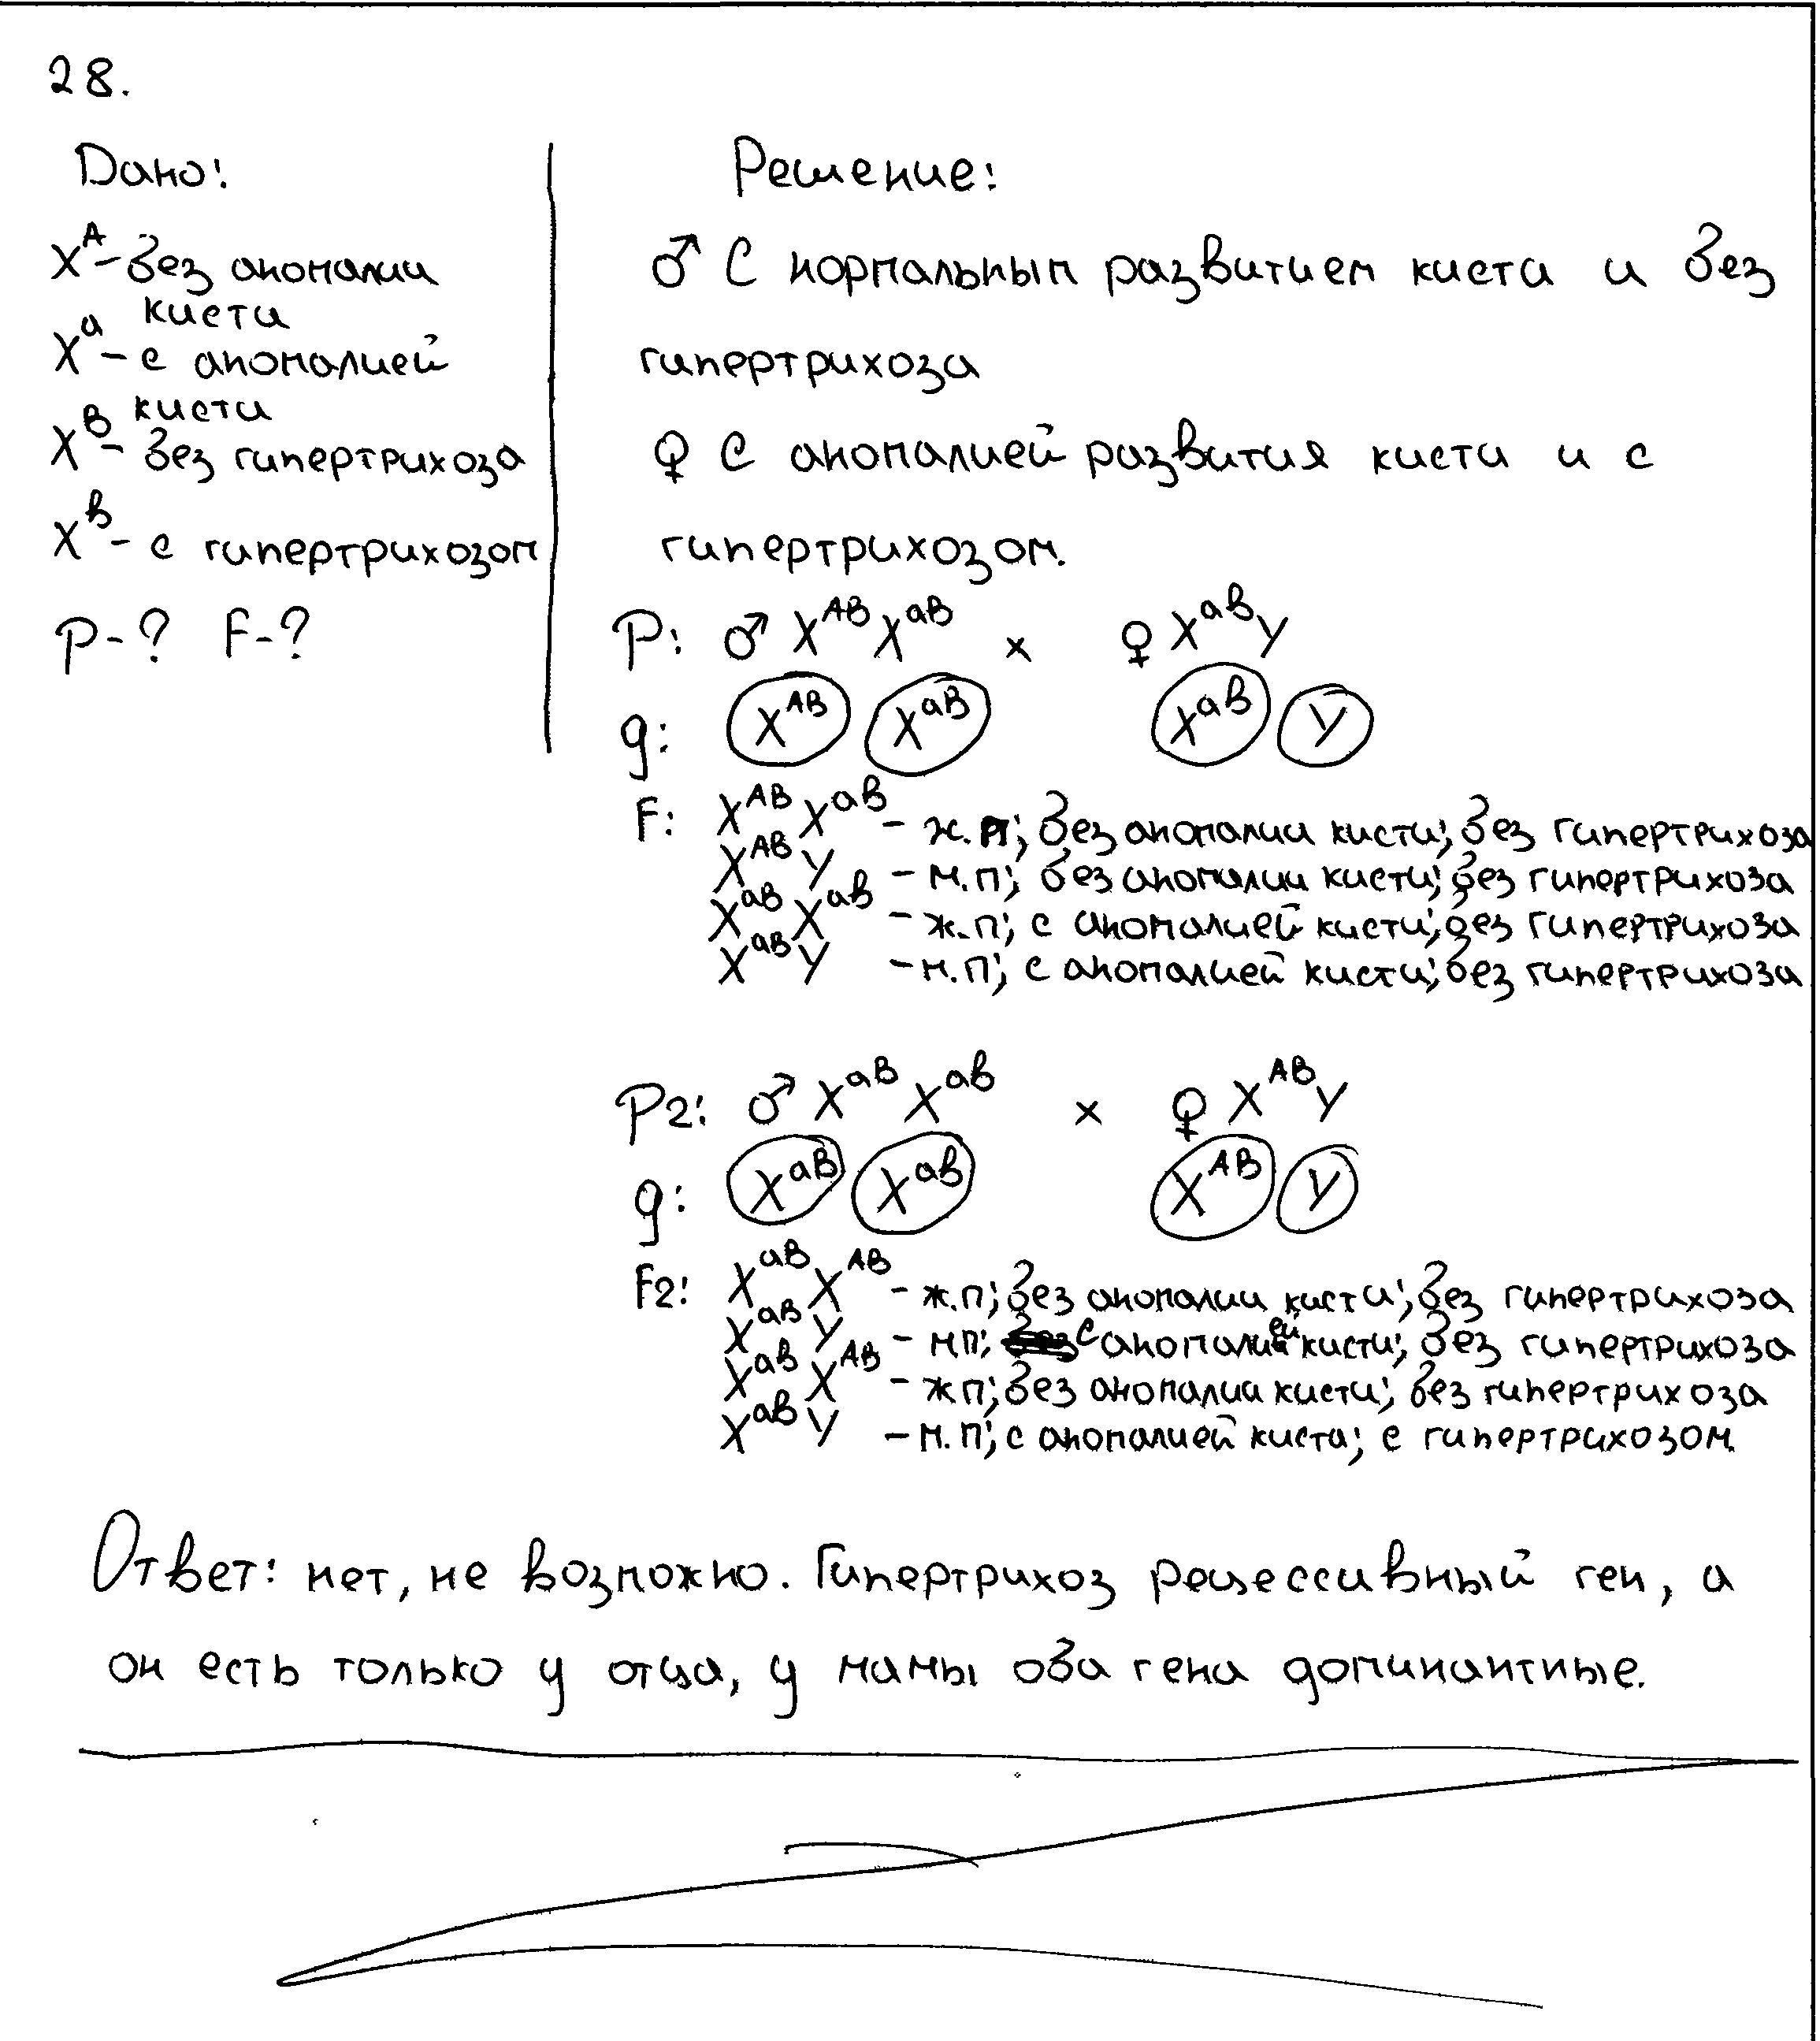 28.
Дано:
X^A - без аномалии
кисти
X^a - с аномалией
кисти
X^B - без гипертрихоза
X^b - с гипертрихозом
P-? F-?
Решение:
♂ С нормальным развитием киста и без
гипертрихоза
♀ С аномалией развития киста и с
гипертрихозом.
P: ♂ X^AB X^aB × ♀ X^ab Y
g: X^AB X^aB X^ab Y
F: X^AB X^ab - ж.п; без аномалии кисти; без гипертрихоза
X^AB Y - м.п; без аномалии кисти; без гипертрихоза
X^aB X^ab - ж.п; с аномалией кисти; без гипертрихоза
X^aB Y - м.п; с аномалией кисти; без гипертрихоза
P2: ♂ X^aB X^ab × ♀ X^AB Y
g: X^aB X^ab X^AB Y
F2: X^aB X^AB - ж.п; без аномалии кисти; без гипертрихоза
X^aB Y - м.п; с аномалией кисти; без гипертрихоза
X^ab X^AB - ж.п; без аномалии кисти; без гипертрихоза
X^ab Y - м.п; с аномалией киста; с гипертрихозом
Ответ: нет, не возможно. Гипертрихоз рецессивный ген, а
он есть только у отца, у мамы оба гена доминантные.